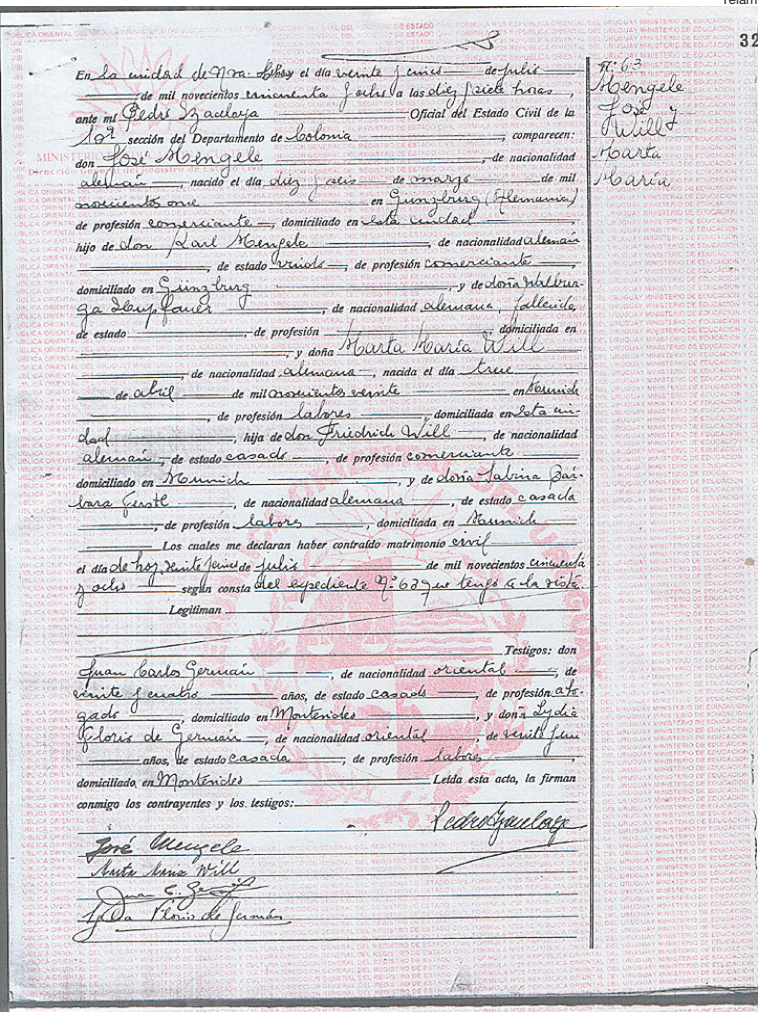 32
Nº 63
Mengele
José y
Will
Marta
María
En la ciudad de Nva. Helvecia el día veinte y cinco de julio
de mil novecientos cincuenta y ocho a las diez y siete horas,
ante mí Pedro Oficial del Estado Civil de la
10ª sección del Departamento de Colonia, comparecen:
don José Mengele, de nacionalidad
alemán, nacido el día diez y seis de marzo de mil
novecientos once en Gunzburg (Alemania)
de profesión comerciante, domiciliado en esta ciudad
hijo de don Karl Mengele, de nacionalidad alemán
, de estado viudo, de profesión comerciante,
domiciliado en Günzburg, y de doña Walbur-
ga, de nacionalidad alemana, fallecida,
de estado, de profesión, domiciliada en
, y doña Marta María Will
, de nacionalidad alemana, nacida el día trece
de abril de mil novecientos veinte en Munich
, de profesión labores, domiciliada en esta ciu-
dad, hija de don Friedrich Will, de nacionalidad
alemán, de estado casado, de profesión comerciante
domiciliado en Munich, y de doña Sabina Bár-
bara, de nacionalidad alemana, de estado casada
, de profesión labores, domiciliada en Munich
Los cuales me declaran haber contraído matrimonio civil
el día de hoy, veinte y cinco de julio de mil novecientos cincuenta
y ocho según consta del expediente Nº 63 que tengo a la vista.
Legitiman
Testigos: don
Juan Carlos Germán, de nacionalidad oriental, de
veinte y cuatro años, de estado casado, de profesión abo-
gado, domiciliado en Montevideo, y doña Lydia
Floris de Germán, de nacionalidad oriental, de veinte y un
años, de estado casada, de profesión labores,
domiciliada en Montevideo Leída esta acta, la firman
conmigo los contrayentes y los testigos:
José Mengele
Marta María Will
Floris de Germán